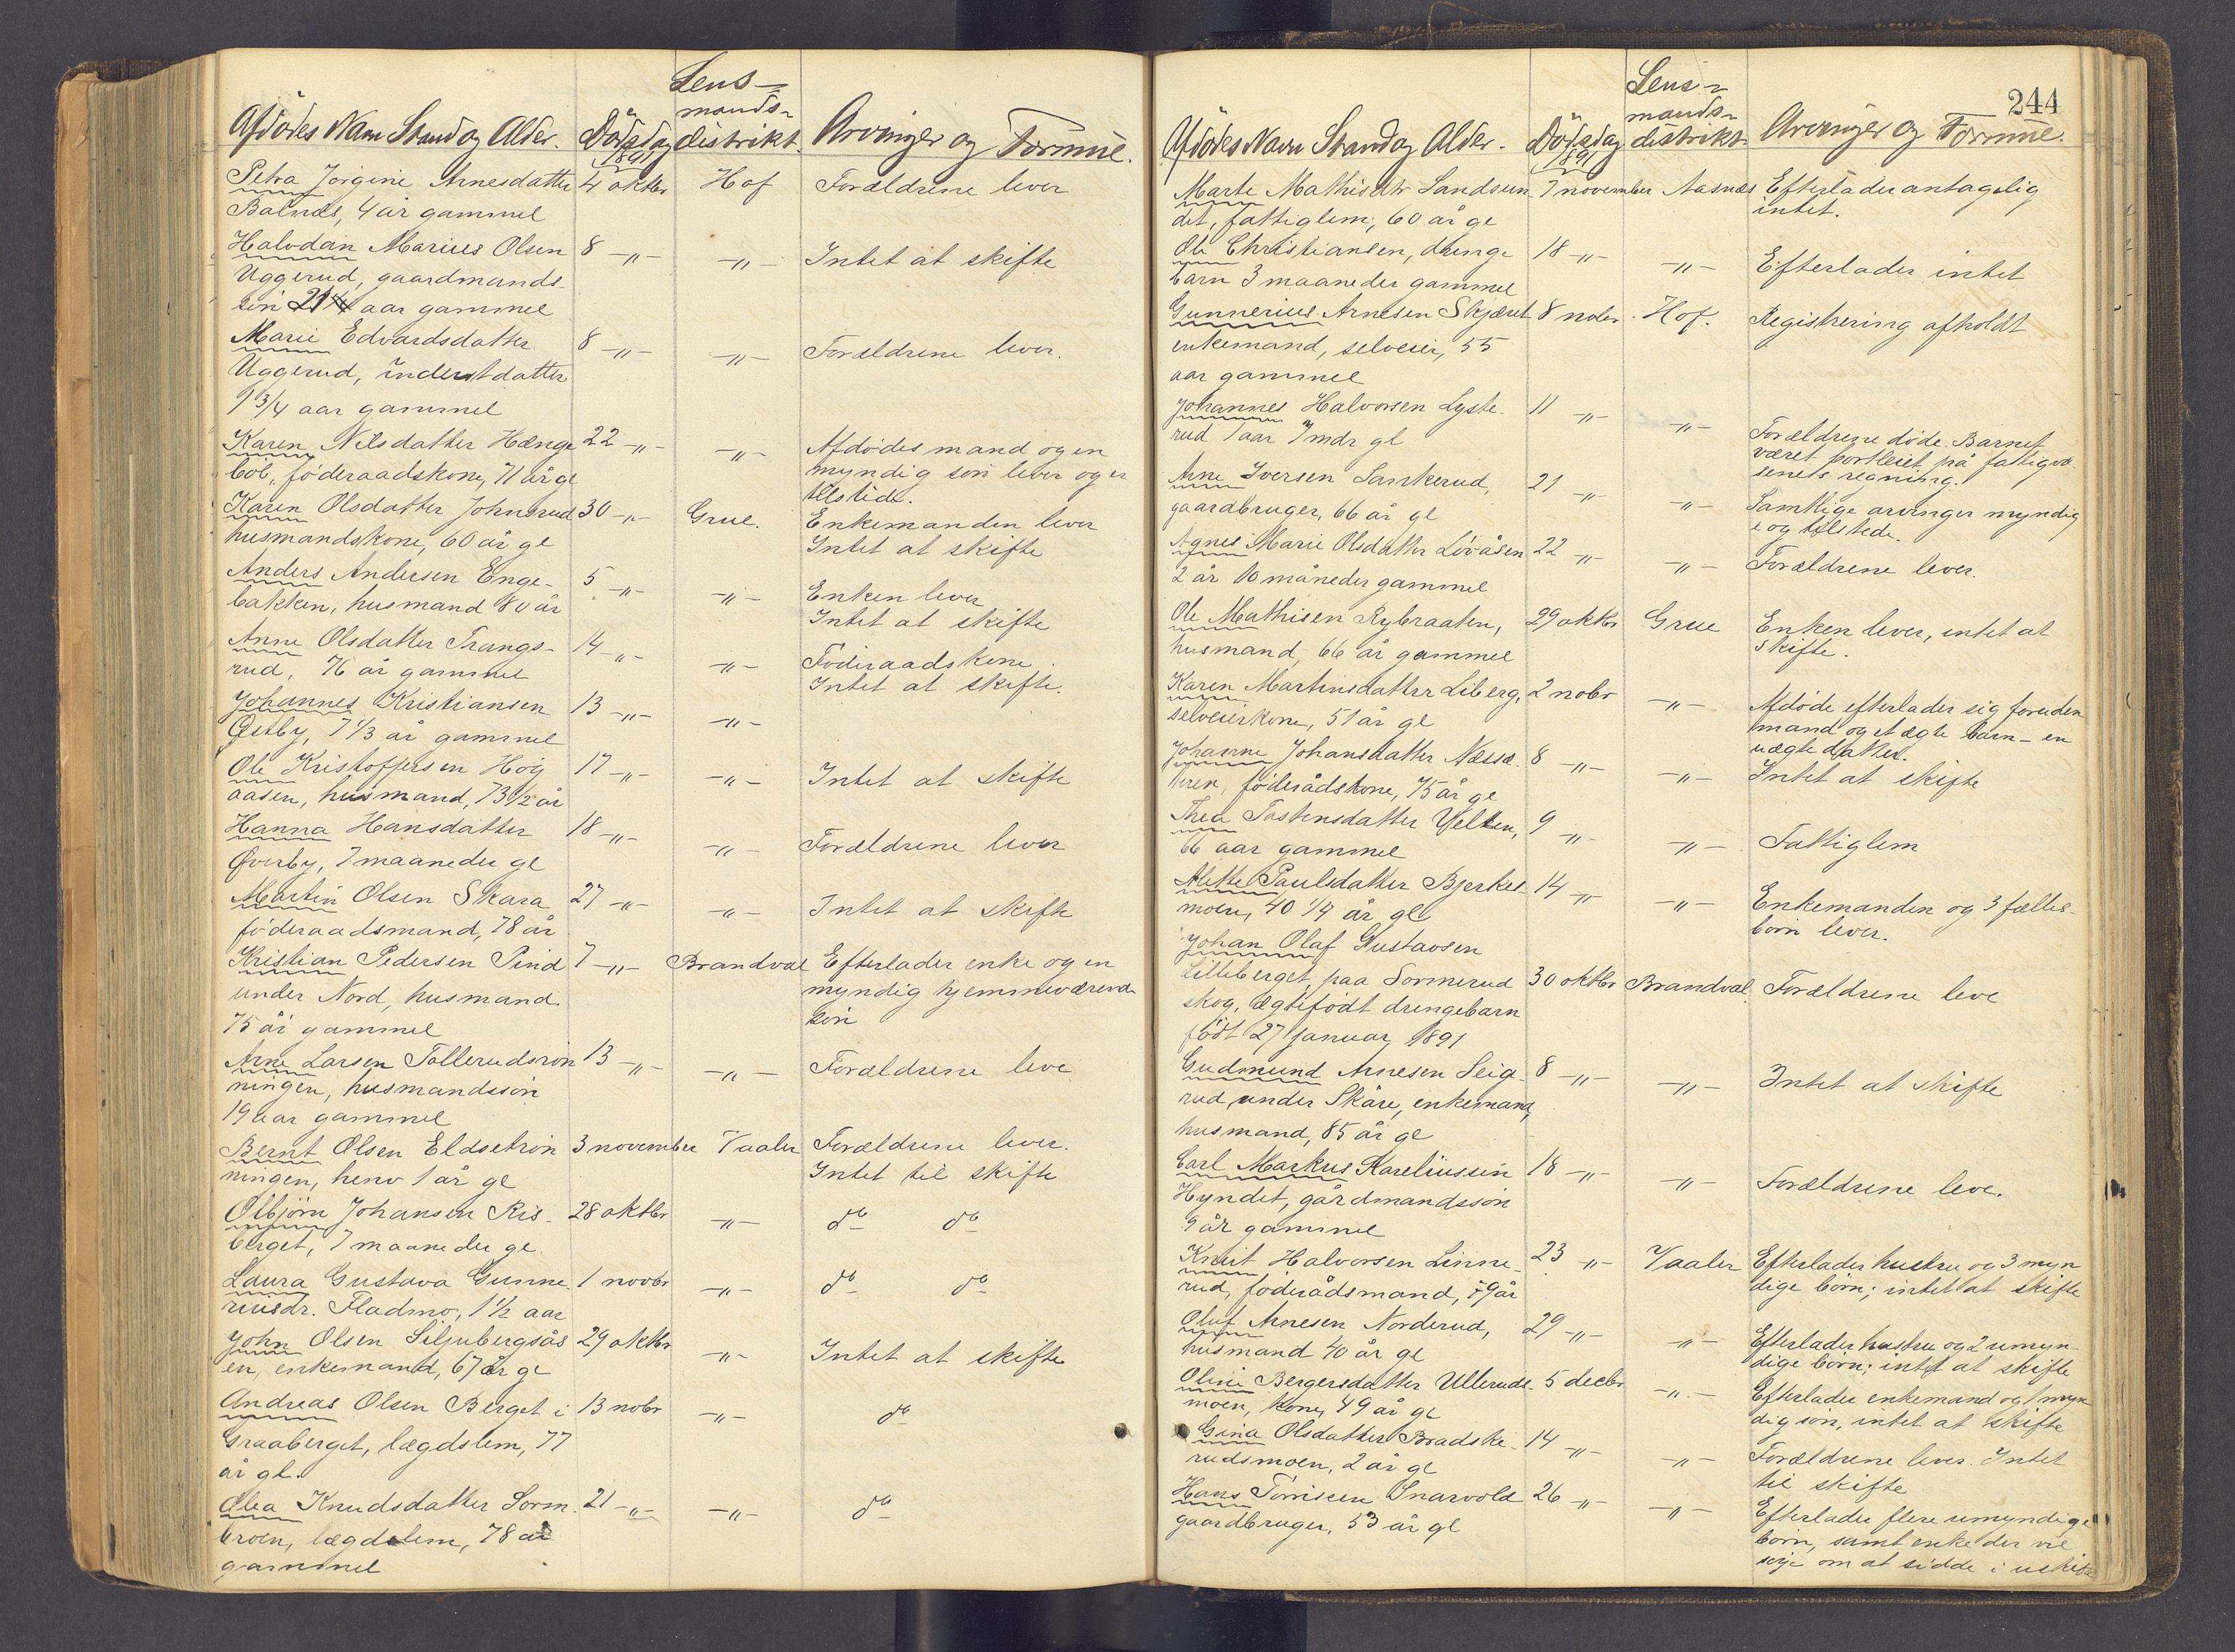 Afdödes Navn Stand og Alder. Dödsdag 1891 Lensmands-distrikt. Arvinger og Formue.
Petra Jörgine Arnesdatter 4 oktbr Hof Forældrene lever
Balnæs, 4 år gammel
Halvdan Marius Olsen 8 -"- -"- Intet at skifte
Uggerud, gaardmands-
sön 21 aar gammel
Marie Edvardsdatter 8 -"- -"- Forældrene lever.
Uggerud, inderstdatter
1 3/4 aar gammel
Karen Nilsdatter Hænge 22 -"- -"- Afdödes mand og en
bøl, föderaadskone, 71 år gl myndig sön lever og er
tilstede.
Karen Olsdatter Johnsrud 30 -"- Grue. Enkemanden lever
husmandskone, 60 år gl Intet at skifte
Anders Andersen Enge- 5 -"- -"- Enken lever
bakken, husmand 80 år Intet at skifte
Anne Olsdatter Trangs- 14 -"- -"- Föderaadskone.
rud, 76 år gammel Intet at skifte.
Johannes Kristiansen 13 -"- -"-
Østby, 7 1/3 år gammel
Ole Kristoffersen Hög 17 -"- -"- Intet at skifte
aasen, husmand, 73 1/2 år
Hanna Hansdatter 18 -"- -"- Forældrene lever
Øverby, 7 maaneder gl
Martin Olsen Skara 27 -"- -"- Intet at skifte
föderaadsmand, 78 år
Kristian Pedersen Pind 7 -"- Brandval Efterlader enke og en
under Nord, husmand. myndig hjemmeværende
75 år gammel sön
Arne Larsen Tollerudsrön 13 -"- -"- Forældrene leve
ningen, husmandssön
19 aar gammel
Bernt Olsen Eldsetrön 3 november Vaaler Forældrene lever.
ningen, henv 1 år gl Intet til skifte
Olbjörn Johansen Ris- 28 oktbr -"- do do
berget, 7 maaneder gl
Laura Gustava Gunne 1 novbr -"- do do
riusdr. Fladmo, 1 1/2 aar
John Olsen Siljubergsås 29 oktbr -"- Intet at skifte
en, enkemand, 67 år gl
Andreas Olsen Berget i 13 nobr -"- do
Graaberget, lægdslem, 77
år gl.
Olea Knudsdatter Sorm 21 -"- -"- do
broen, lægdslem, 78 år
gammel
244
Afdödes Navn Stand og Alder. Dödsdag 1891 Lens-mands-distrikt. Arvinger og Formue.
Marte Mathisdtr Sandsun 7 november Aasnæs Efterlader antagelig
det, fattiglem, 60 år gl intet.
Ole Christiansen, drenge 18 -"- -"- Efterlader intet
barn 3 maaneder gammel
Gunnerius Arnesen Skjæret 8 nobr. Hof. Registrering afholdt
enkemand, selveier, 55
aar gammel
Johannes Halvorsen Lyste- 11 -"- -"- Forældrene döde. Barnet
rud 1 aar 7 mdr gl været bortleiet på fattigvæ
senets regning.
Arne Iversen Sankerud, 21 -"- -"- Samtlige arvinger myndig
gaardbruger, 66 år gl e og tilstede.
Agnes Marie Olsdatter Lövåsen 22 -"- -"- Forældrene lever.
2 år 10 måneder gammel
Ole Mathisen Rybraaten, 29 oktbr Grue Enken lever, intet at
husmand, 66 år gammel skifte.
Karen Martinsdatter Liberg, 2 nobr -"- Afdöde efterlader sig foruden
selveierkone, 51 år gl mand og et ægte barn - en
uægte datter.
Johanne Johansdatter Næssæ- 8 -"- -"- Intet at skifte
teren, föderådskone, 75 år gl
Thea Tostensdatter Velten, 9 -"- -"- Fattiglem
66 aar gammel
Alette Paulsdatter Bjerkes- 14 -"- -"- Enkemanden og 3 fælles-
moen, 40 1/4 år gl börn lever.
Johan Olaf Gustavsen
Lilleberget, paa Sormerud 30 oktbr Brandval Forældrene leve
skog, ægtefödt drengebarn
födt 27 januar 1891
Gudmund Arnesen Seig- 8 -"- -"- Intet at skifte
rud under Skåre, enkemand,
husmand, 85 år gl
Carl Markus Kareliussen 18 -"- -"- Forældrene leve.
Hyndet, gårdmandssön
9 år gammel
Knut Halvorsen Linne- 23 -"- Vaaler Efterlader hustru og 3 myn
rud, föderådsmand, 79 år dige börn; intet at skifte
Oluf Arnesen Norderud, 29 -"- -"- Efterlader hustru og 2 umyn-
husmand 40 år gl dige börn; intet at skifte
Oline Bergersdatter Ullerud- 5 decbr -"- Efterlader enkemand og 1 myn
moen, kone, 49 år gl dig sön, intet at skifte
Gina Olsdatter Bradske- 14 -"- -"- Forældrene lever. Intet
rudsmoen, 2 år gl til skifte
Hans Törrisen Snarvold 26 -"- -"- Efterlader flere umyndige
gaardbruger, 53 år gl börn, samt enke der vil
söge om at sidde i uskifte